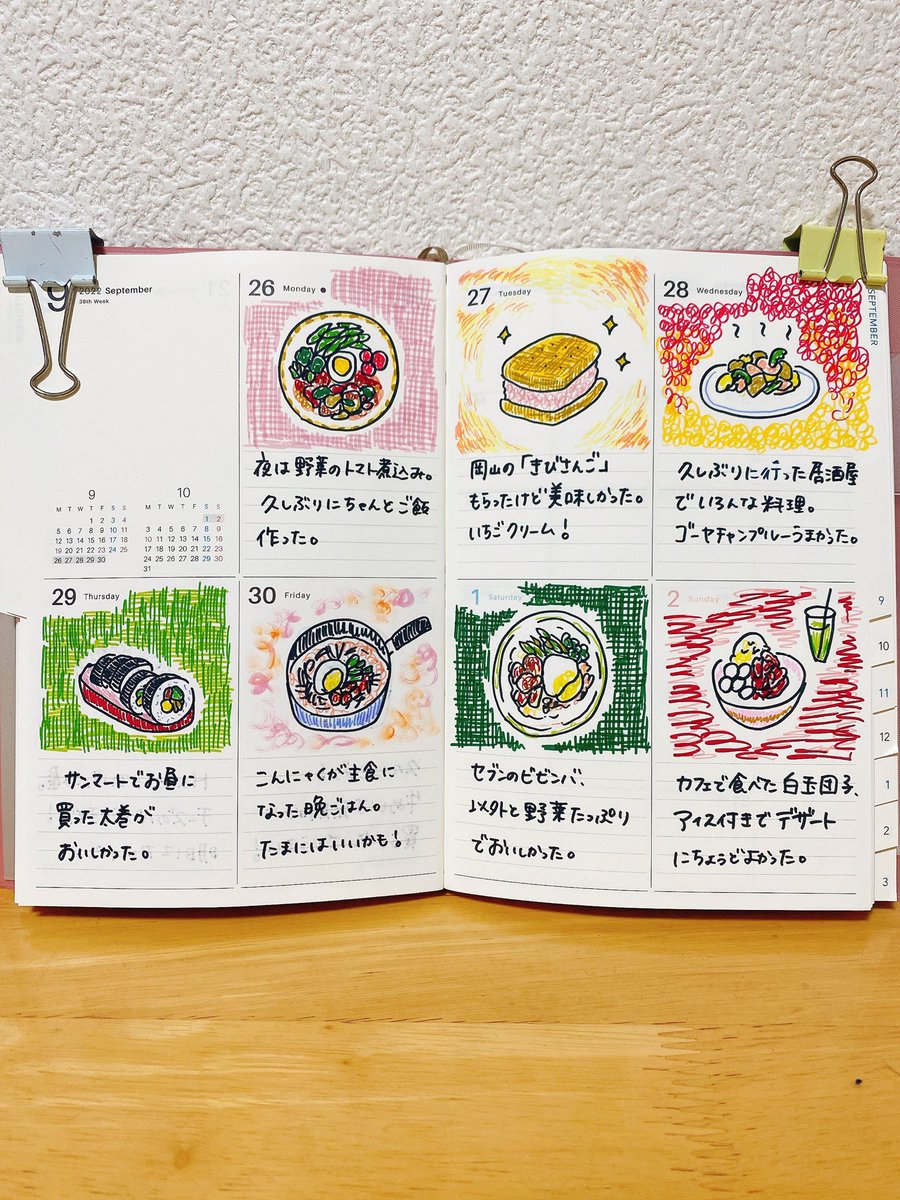 9
2022 September
39th Week
9
M T W T F S S
1 2 3 4
5 6 7 8 9 10 11
12 13 14 15 16 17 18
19 20 21 22 23 24 25
26 27 28 29 30
10
M T W T F S S
1 2
3 4 5 6 7 8 9
10 11 12 13 14 15 16
17 18 19 20 21 22 23
24 25 26 27 28 29 30
31
26 Monday
夜は野菜のトマト煮込み。
久しぶりにちゃんとご飯
作った。
27 Tuesday
岡山の「きびさんご」
もらったけど美味しかった。
いちごクリーム!
28 Wednesday
久しぶりに行った居酒屋
でいろんな料理。
ゴーヤチャンプルーうまかった。
SEPTEMBER
29 Thursday
サンマートでお昼に
買った太巻が
おいしかった。
30 Friday
こんにゃくが主食に
なった晩ごはん。
たまにはいいかも!
1 Saturday
セブンのビビンバ、
以外と野菜たっぷり
でおいしかった。
2 Sunday
カフェで食べた白玉団子、
アイス付きでデザート
にちょうどよかった。
9
10
11
12
1
2
3